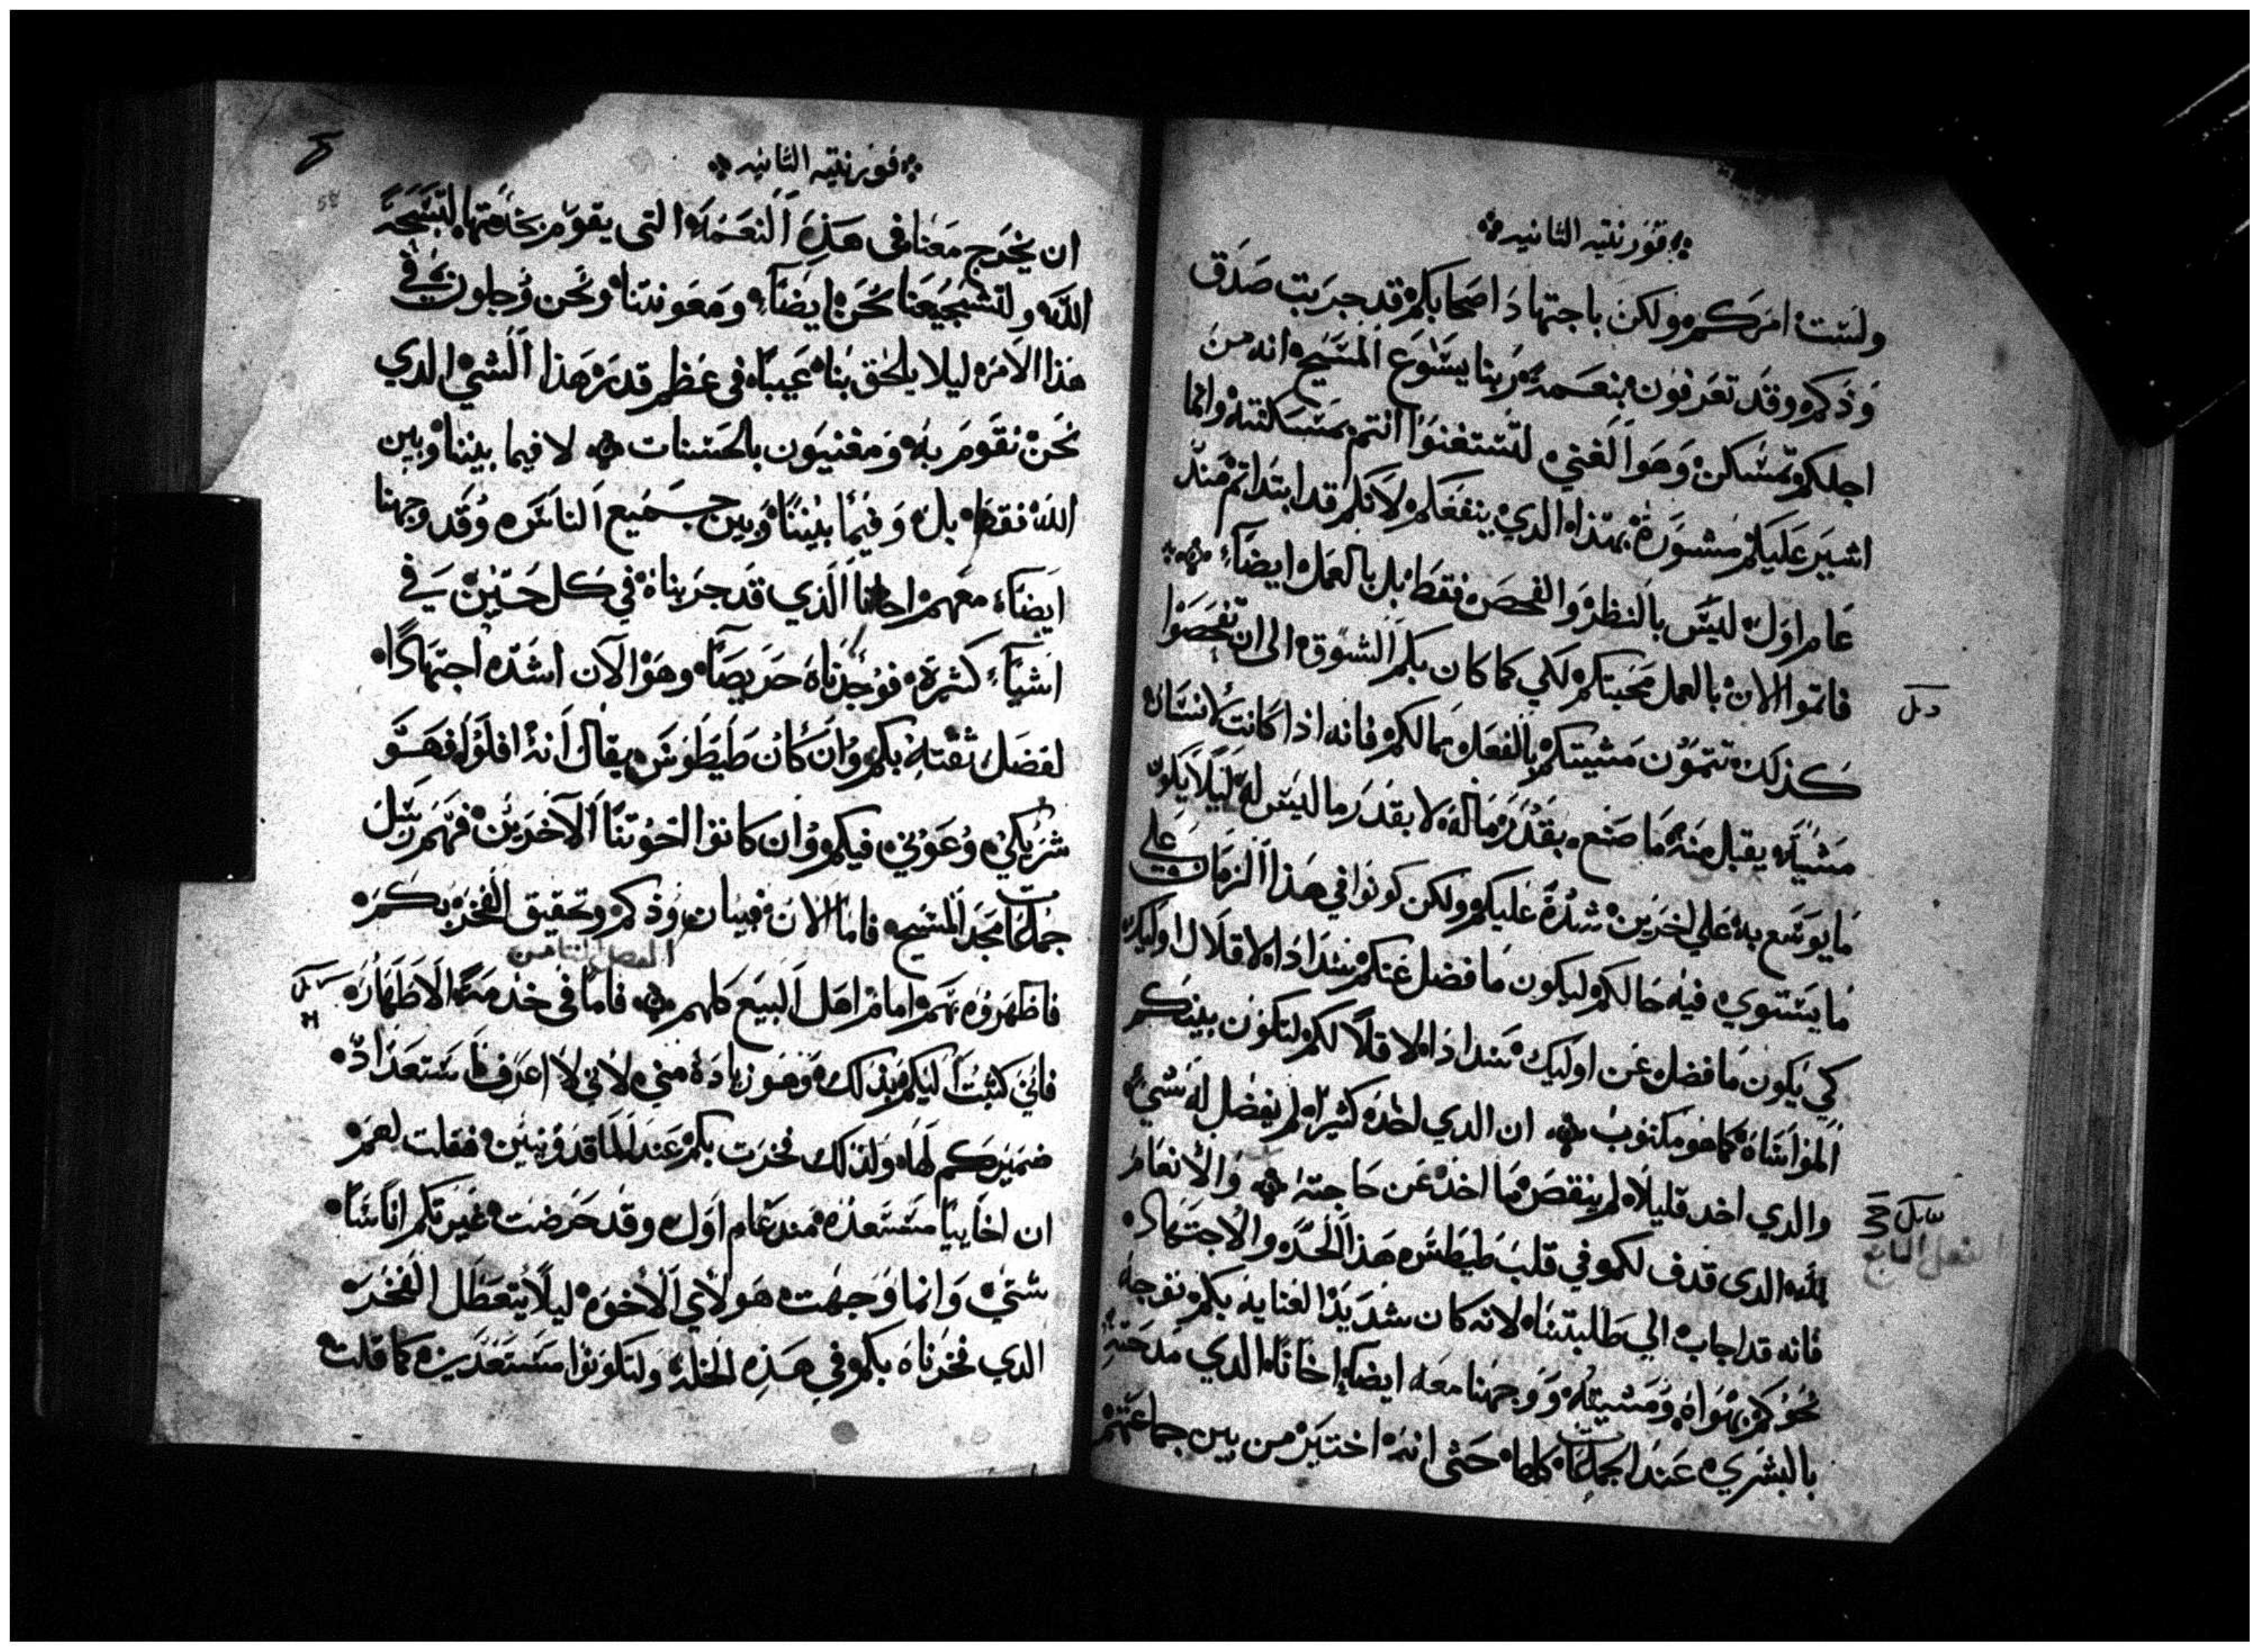 قورنتيه الثانيه
ولست امركم ولكن باجتهاد اصحابكم قد جربت صدق
ودكم وقد تعرفون بنعمة ربنا يسوع المسيح انه من
اجلكم تمسكن وهو الغني لتستغنوا انتم بمسكنته وانما
اشير عليكم مشورة بهذا الدي ينفعكم لانكم قد ابتداتم مند
عام اول ليس بالنظر والفحص فقط بل بالعمل ايضاء
فاتموا الان بالعمل محبتكم لكي كما كان بكم الشوق الى ان تفحصوا
كذلك تتمون مشيتكم بالفعل مما لكم فانه اذا كانت لانسان
مشية يقبل منه ما صنع بقدر ماله لا بقدر ما ليس له ليلا يكون
ما يوسع به على اخرين شدة عليكم ولكن كونوا في هذا الزمان على
ما يستوي فيه حالكم ليكون ما فضل عنكم سدادا لاقلال اوليك
كي يكون ما فضل عن اوليك سدادا لاقلالكم لتكون بينكم
المواساة كما هو مكتوب ان الدي اخد كثيرا لم يفضل له شي
والدي اخد قليلا لم ينقص مما اخد عن حاجته والانعام
لله الدى قدف لكم وفي قلب طيطس هذا الحد والاجتهاد
فانه قد اجاب الي طلبتنا لانه كان شديد العنايه بكم توجه
نحوكم بهواه ومشيته ووجهنا معه ايضا اخانا الدي مدحته
بالبشري عند الجماعات كلها حتى انه اختير من بين جماعتهم
دىل
الفصل التامن
قورنتيه الثانيه
ان يخرج معنا في هذه النعمة التى يقوم بخدمتها لتسبحة
الله ولتشجيعنا نحن ايضاء ومعونتنا ونحن وجلون في
هذا الامر ليلا يلحق بنا عيبا في عظم قدر هذا الشي الدي
نحن نقوم به ومغنيون بالحسنات لا فيما بيننا وبين
الله فقط بل وفيما بيننا وبين جميع الناس وقد وجهنا
ايضاء معهم اخانا الذي قد جربناه في كل حين في
اشياء كثيرة فوجدناه حريصا وهو الان اشد اجتهادا
لفضل ثقته بكم وان كان طيطوس يقال انه افلوا فهو
شريكي وعوني فيكم وان كانوا اخوتنا الاخرين فهم رسل
جماعات مجد المسيح فاما الان فبيان ودكم وتحقيق الفخر بكم
فاظهروه بهم امام اهل البيع كلهم فاما في خدمة الاطهار
فاني كتبت اليكم بذلك وهو زيادة مني لاني لا اعرف استعداد
ضميركم لها ولذلك فخرت بكم عند الماقدونيين فقلت لهم
ان اخاييا مستعده مند عام اول وقد حرضت غيرتكم اناسا
شتي وانما وجهت هولاي الاخوه ليلا يتعطل الفخر
الدي فخرناه بكم في هذه الخلة ولتكونوا مستعدين كما قلت